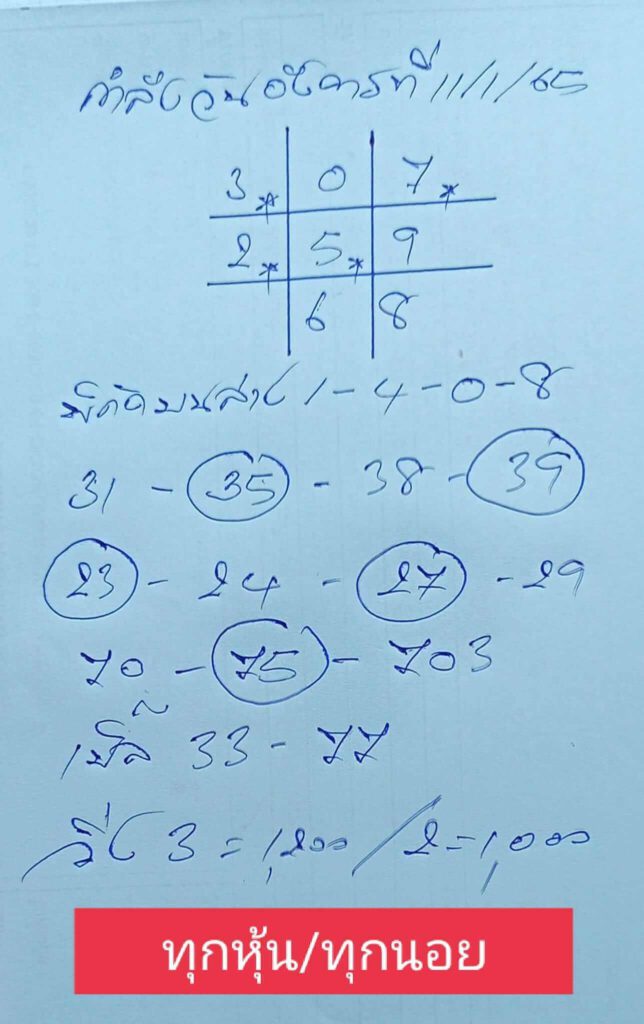 กำลังวันอังคารที่ 11/1/65
3* 0 7*
2* 5* 9
6 8
บน ล่าง 1-4-0-8
31 - 35 - 38 - 39
23 - 24 - 27 - 29
70 - 75 - 703
เบิ้ล 33 - 77
วิ่ง 3 = 1,200 / 2 = 1,000
ทุกหุ้น/ทุกนอย